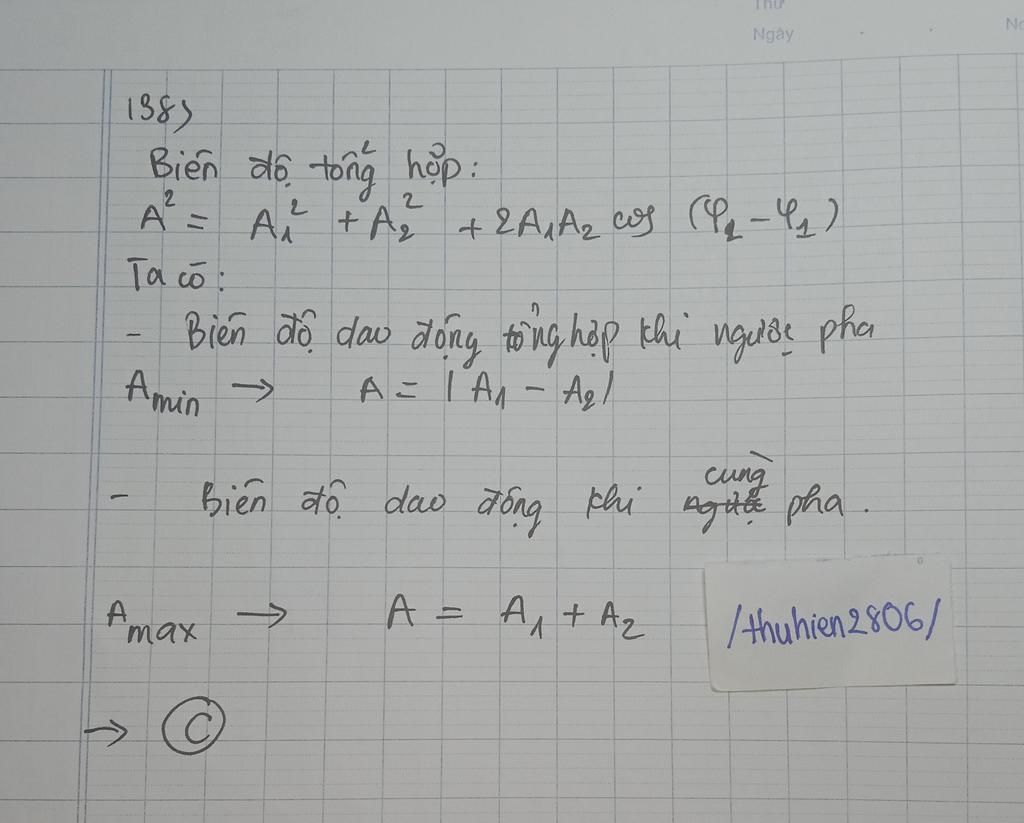 Thứ
Ngày
138)
Biên độ tổng hợp:
A² = A₁² + A₂² + 2A₁A₂ cos (φ₂ - φ₁)
Ta có:
- Biên độ dao động tổng hợp khi ngược pha
Amin → A = |A₁ - A₂|
- Biên độ dao động khi ngược cùng pha.
Amax → A = A₁ + A₂
/thuhien2806/
→ C